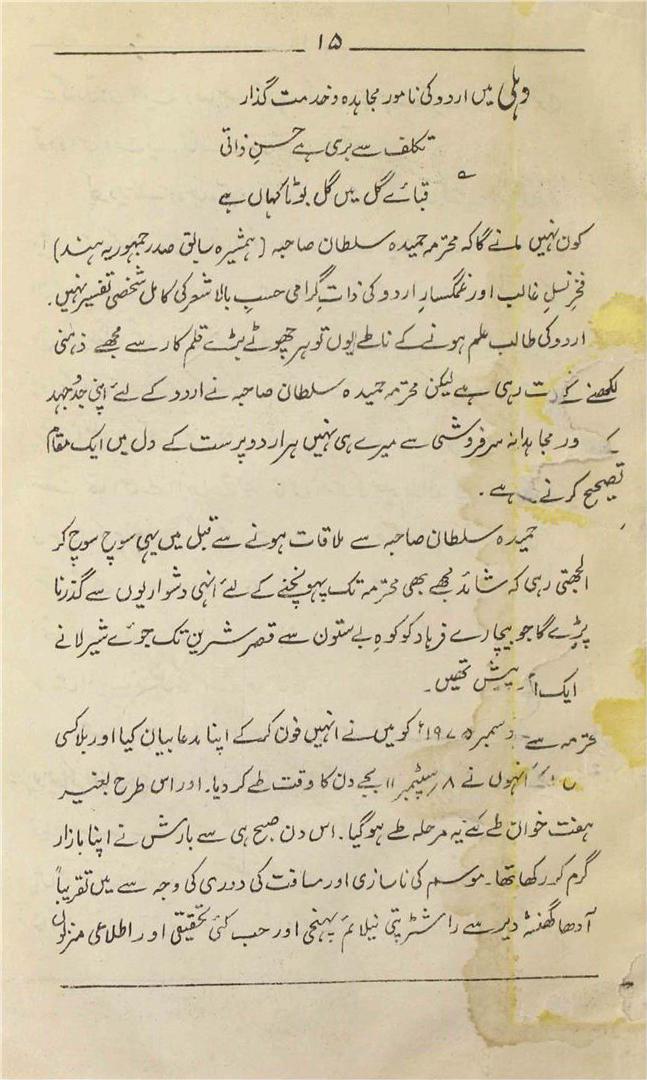 ۱۵
دہلی میں اردو کی نامور مجاہدہ و خدمت گذار
تکلف سے بری ہے حسنِ ذاتی
قبائے گل میں گل بوٹا کہاں ہے
کون نہیں مانے گا کہ محترمہ حمیدہ سلطان صاحبہ (ہمشیرہ سابق صدر جمہوریہ ہند)
فخرِ نسلِ غالب اور غمگسارِ اردو کی ذاتِ گرامی حسبِ بالا شعر کی کامل شخصی تفسیر نہیں۔
اردو کی طالب علم ہونے کے ناطے یوں تو ہر چھوٹے بڑے قلم کار سے مجھے ذہنی
رہی ہے لیکن محترمہ حمیدہ سلطان صاحبہ نے اردو کے لئے اپنی جدوجہد
ور مجاہدانہ سرفروشی سے میرے ہی نہیں ہر اردو پرست کے دل میں ایک مقام
ہے۔
حمیدہ سلطان صاحبہ سے ملاقات ہونے سے قبل میں یہی سوچ سوچ کر
الجھتی رہی کہ شائد مجھے بھی محترمہ تک پہونچنے کے لئے انہی دشواریوں سے گذرنا
پڑے گا جو بیچارے فرہاد کو کوہِ بے ستون سے قصرِ شیریں تک جوئے شیر لانے
پیش تھیں۔
سے دسمبر ۱۹۷۵ء کو میں نے انہیں فون کرکے اپنا مدعا بیان کیا اور بلا کسی
انہوں نے ۸ ستمبر ۱۱ بجے دن کا وقت طے کر دیا۔ اور اس طرح بغیر
ہفت خوان طے کئے یہ مرحلہ طے ہوگیا۔ اس دن صبح ہی سے بارش نے اپنا بازار
گرم کر رکھا تھا۔ موسم کی ناسازی اور مسافت کی دوری کی وجہ سے میں تقریباً
آدھا گھنٹہ دیر سے راشٹرپتی نیلائم پہنچی اور جب کئی تحقیقی اور اطلاعی منزلوں